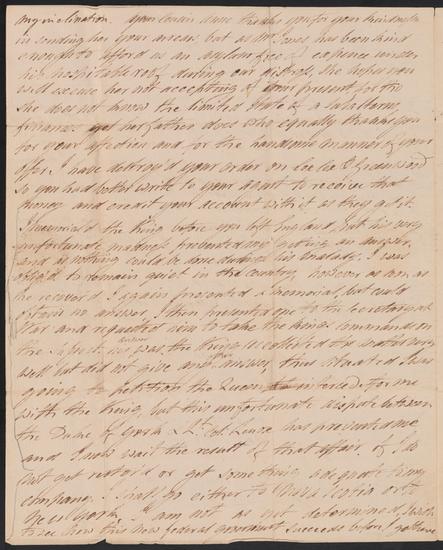 my inclination. your cousin Anne thanks you for your kindness
in sending her your as Mr Jones has been kind
enough to afford us an asylum free of expence under
his hospitable roof during our distress, she hopes you
will excuse her not accepting of your present for tho
she does not know the limited State of a subalterns
finances yet her father does who equally thanks you
for your affection and for the handsome manner of your
offer I have destroy'd your order on
so you had better write to your agent to receive that
money and credit your account with it as they a it.
I memorial'd the King before you left England, but his very
unfortunate madness prevented my getting an answer,
and as nothing could be done during his malady. I was
oblig'd to remain quiet in the country, however as soon as
he recover'd I again presented a memorial, but could
obtain no answer, I then presented one to the Secretary at
War and requested him to take the Kings commands on
the subject, answer was, the King recollected the matter very
well but did not give any other answer, thus situated I was
going to petition the Queen to intercede for me
with the King, but this unfortunate dispute between
the Duke of York & Lt. Col. Lenox has prevented me,
and I now wait the result of that affair, if I do
not get restor'd or get something adequate to my
company. I shall go either to Nova Scotia or to
New york, I am not as yet determined I wish
to see how this new federal government succeeds before I go there